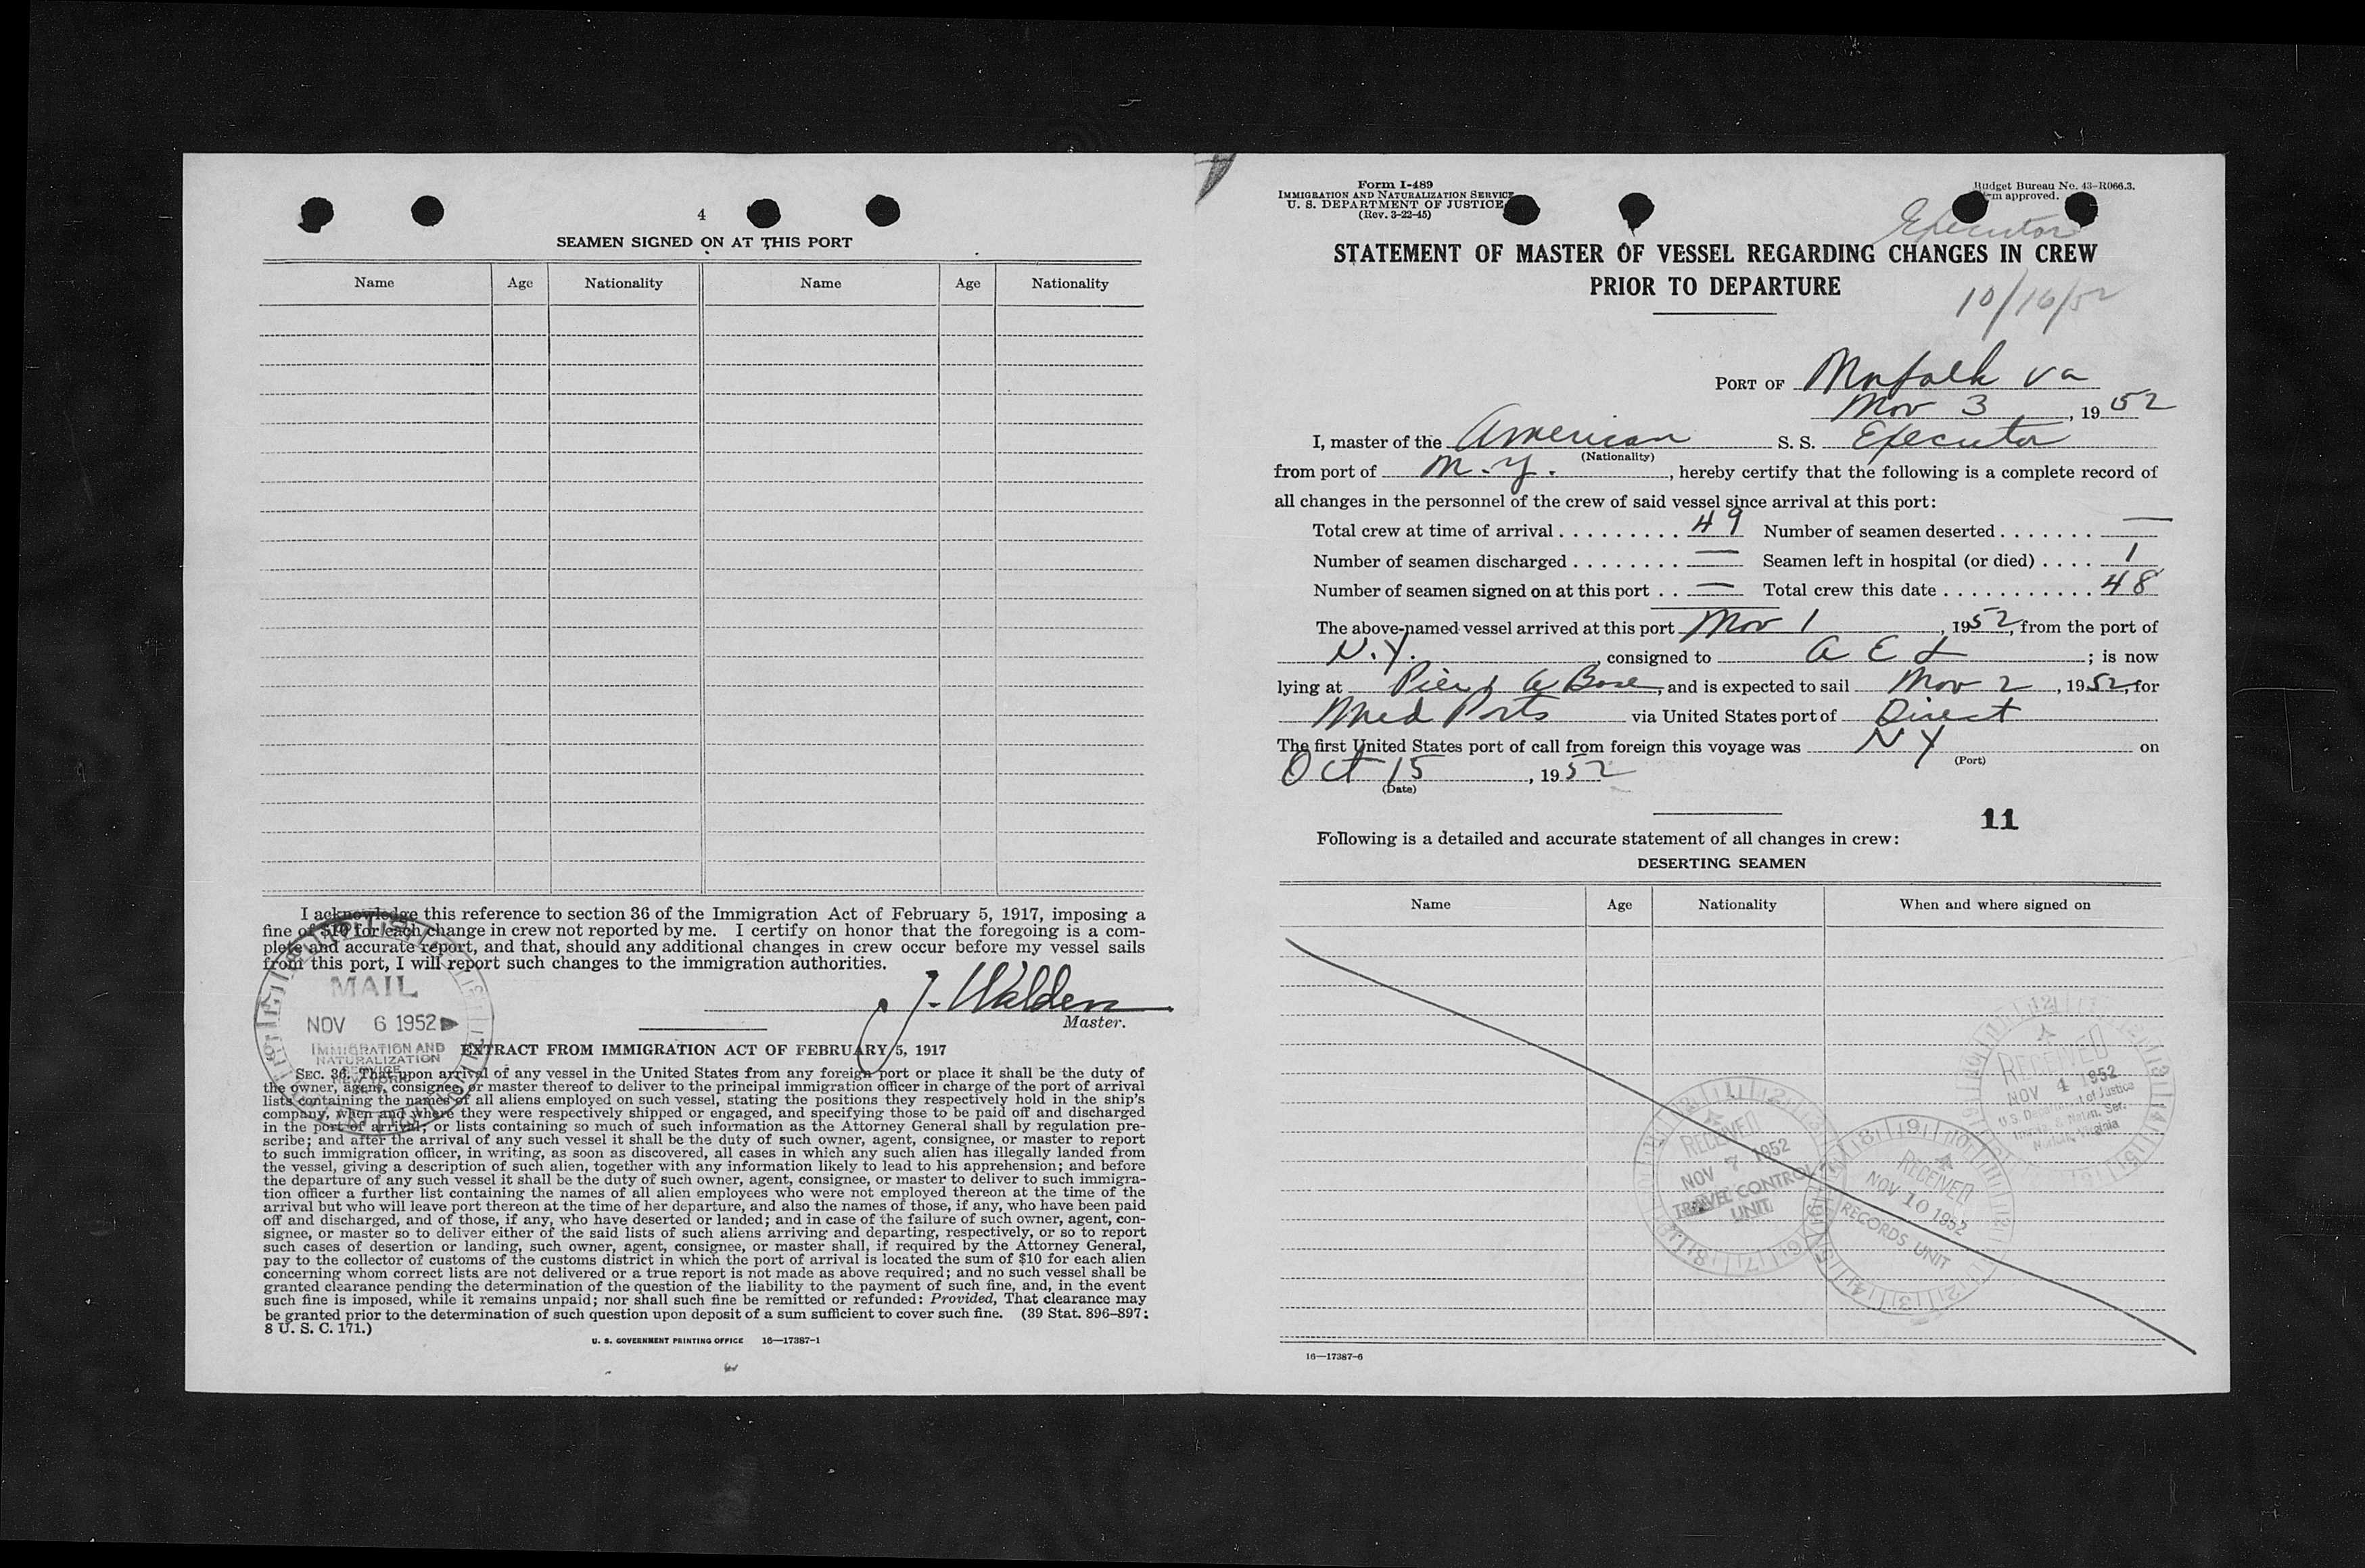 4
SEAMEN SIGNED ON AT THIS PORT
Name Age Nationality Name Age Nationality
I acknowledge this reference to section 36 of the Immigration Act of February 5, 1917, imposing a
fine of $10 for each change in crew not reported by me. I certify on honor that the foregoing is a com-
plete and accurate report, and that, should any additional changes in crew occur before my vessel sails
from this port, I will report such changes to the immigration authorities.
J. Walden
Master.
MAIL
NOV 6 1952
IMMIGRATION AND
NATURALIZATION
SERVICE
NEW YORK
EXTRACT FROM IMMIGRATION ACT OF FEBRUARY 5, 1917
SEC. 36. That upon arrival of any vessel in the United States from any foreign port or place it shall be the duty of
the owner, agent, consignee, or master thereof to deliver to the principal immigration officer in charge of the port of arrival
lists containing the names of all aliens employed on such vessel, stating the positions they respectively hold in the ship's
company, when and where they were respectively shipped or engaged, and specifying those to be paid off and discharged
in the port of arrival; or lists containing so much of such information as the Attorney General shall by regulation pre-
scribe; and after the arrival of any such vessel it shall be the duty of such owner, agent, consignee, or master to report
to such immigration officer, in writing, as soon as discovered, all cases in which any such alien has illegally landed from
the vessel, giving a description of such alien, together with any information likely to lead to his apprehension; and before
the departure of any such vessel it shall be the duty of such owner, agent, consignee, or master to deliver to such immigra-
tion officer a further list containing the names of all alien employees who were not employed thereon at the time of the
arrival but who will leave port thereon at the time of her departure, and also the names of those, if any, who have been paid
off and discharged, and of those, if any, who have deserted or landed; and in case of the failure of such owner, agent, con-
signee, or master so to deliver either of the said lists of such aliens arriving and departing, respectively, or so to report
such cases of desertion or landing, such owner, agent, consignee, or master shall, if required by the Attorney General,
pay to the collector of customs of the customs district in which the port of arrival is located the sum of $10 for each alien
concerning whom correct lists are not delivered or a true report is not made as above required; and no such vessel shall be
granted clearance pending the determination of the question of the liability to the payment of such fine, and, in the event
such fine is imposed, while it remains unpaid; nor shall such fine be remitted or refunded: Provided, That clearance may
be granted prior to the determination of such question upon deposit of a sum sufficient to cover such fine. (39 Stat. 896–897;
8 U. S. C. 171.)
U. S. GOVERNMENT PRINTING OFFICE 16—17387-1
Form I-489
IMMIGRATION AND NATURALIZATION SERVICE
U. S. DEPARTMENT OF JUSTICE
(Rev. 3-22-45)
Budget Bureau No. 43-R066.3.
approved.
Executor
STATEMENT OF MASTER OF VESSEL REGARDING CHANGES IN CREW
PRIOR TO DEPARTURE
10/16/52
PORT OF Norfolk Va
Nov 3, 1952
I, master of the American S. S. Executor
(Nationality)
from port of N.Y., hereby certify that the following is a complete record of
all changes in the personnel of the crew of said vessel since arrival at this port:
Total crew at time of arrival 49 Number of seamen deserted —
Number of seamen discharged — Seamen left in hospital (or died) 1
Number of seamen signed on at this port — Total crew this date 48
The above-named vessel arrived at this port Nov 1, 1952, from the port of
N.Y. consigned to A E L; is now
lying at Pier Base, and is expected to sail Nov 2, 1952, for
Med Ports via United States port of Direct
The first United States port of call from foreign this voyage was NY on
(Port)
Oct 15, 1952
(Date)
11
Following is a detailed and accurate statement of all changes in crew:
DESERTING SEAMEN
Name Age Nationality When and where signed on
RECEIVED
NOV 4 1952
U.S. Department of Justice
Immig. & Natzn. Ser.
Norfolk, Virginia
RECEIVED
NOV 7 1952
TRAVEL CONTROL
UNIT
RECEIVED
NOV 10 1952
RECORDS UNIT
16—17387-6